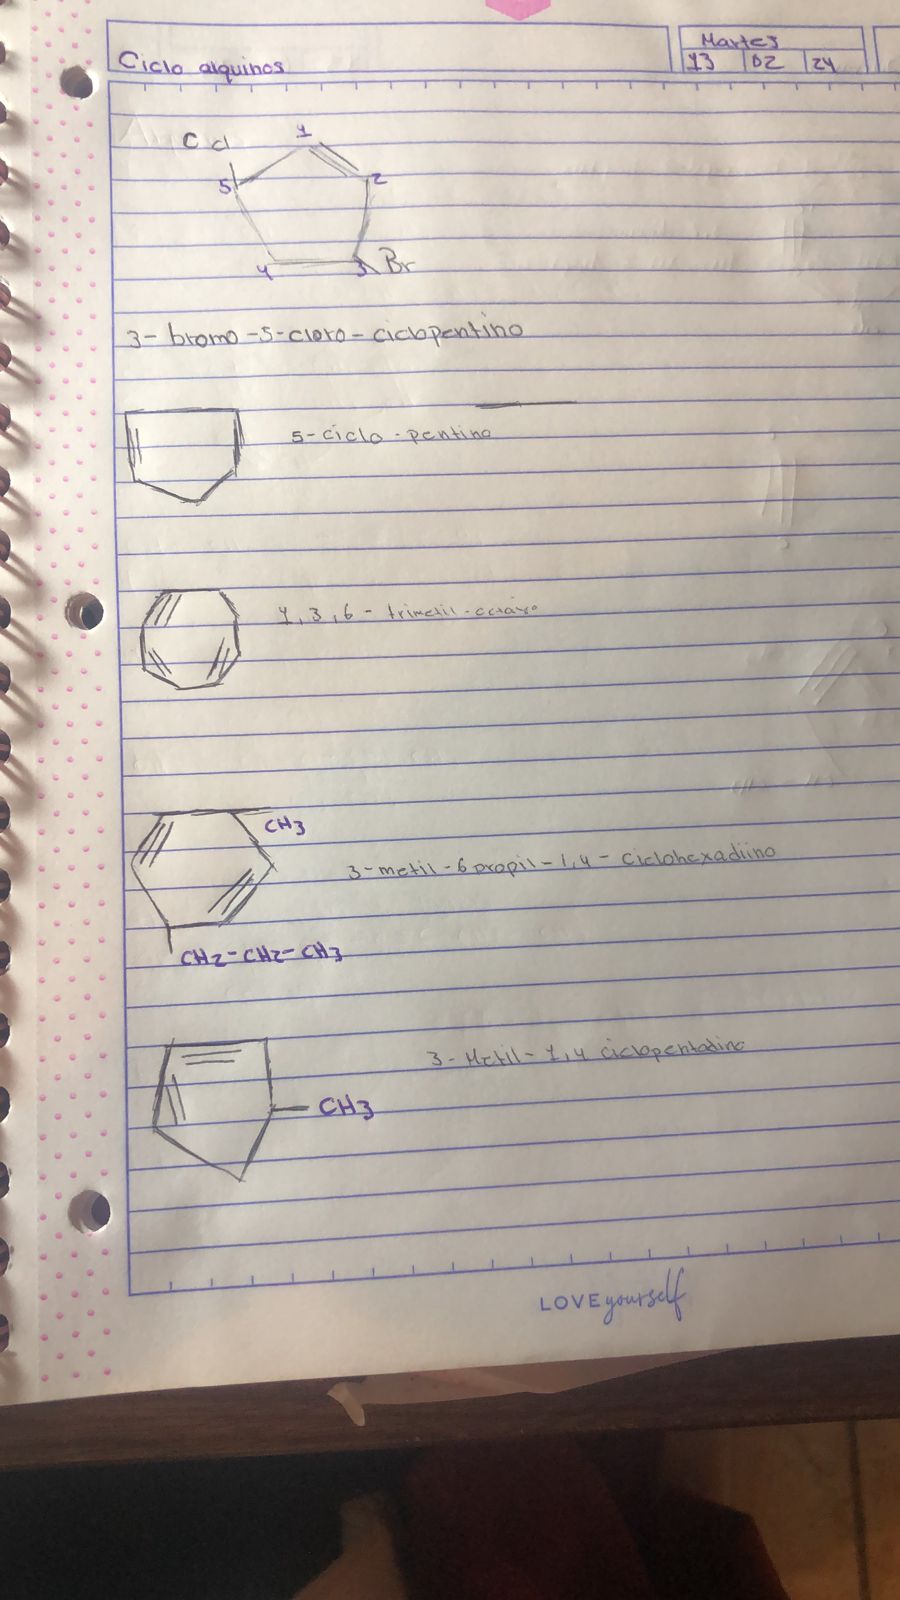 Martes
Ciclo alquinos
13 02 24
C cl
1
5
2
4
3 Br
3- bromo -5-cloro- ciclopentino
5-ciclo-pentino
1,3,6- trimetil-
CH3
3-metil-6propil-1,4- Ciclohexadiino
CH2-CH2-CH3
3-Metil-1,4 ciclopentadino
CH3
LOVE yourself